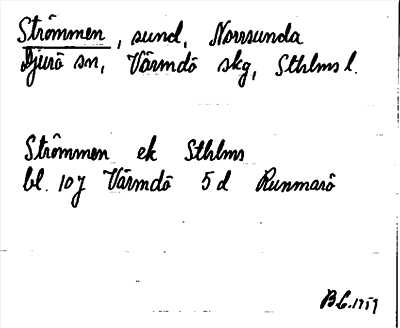 Strömmen, sund, Norrsunda
Djurö sn, Värmdö skg, Sthlms l.
Strömmen ek Sthlms
bl. 10 j Värmdö 5 d Runmarö
B.G. 1959